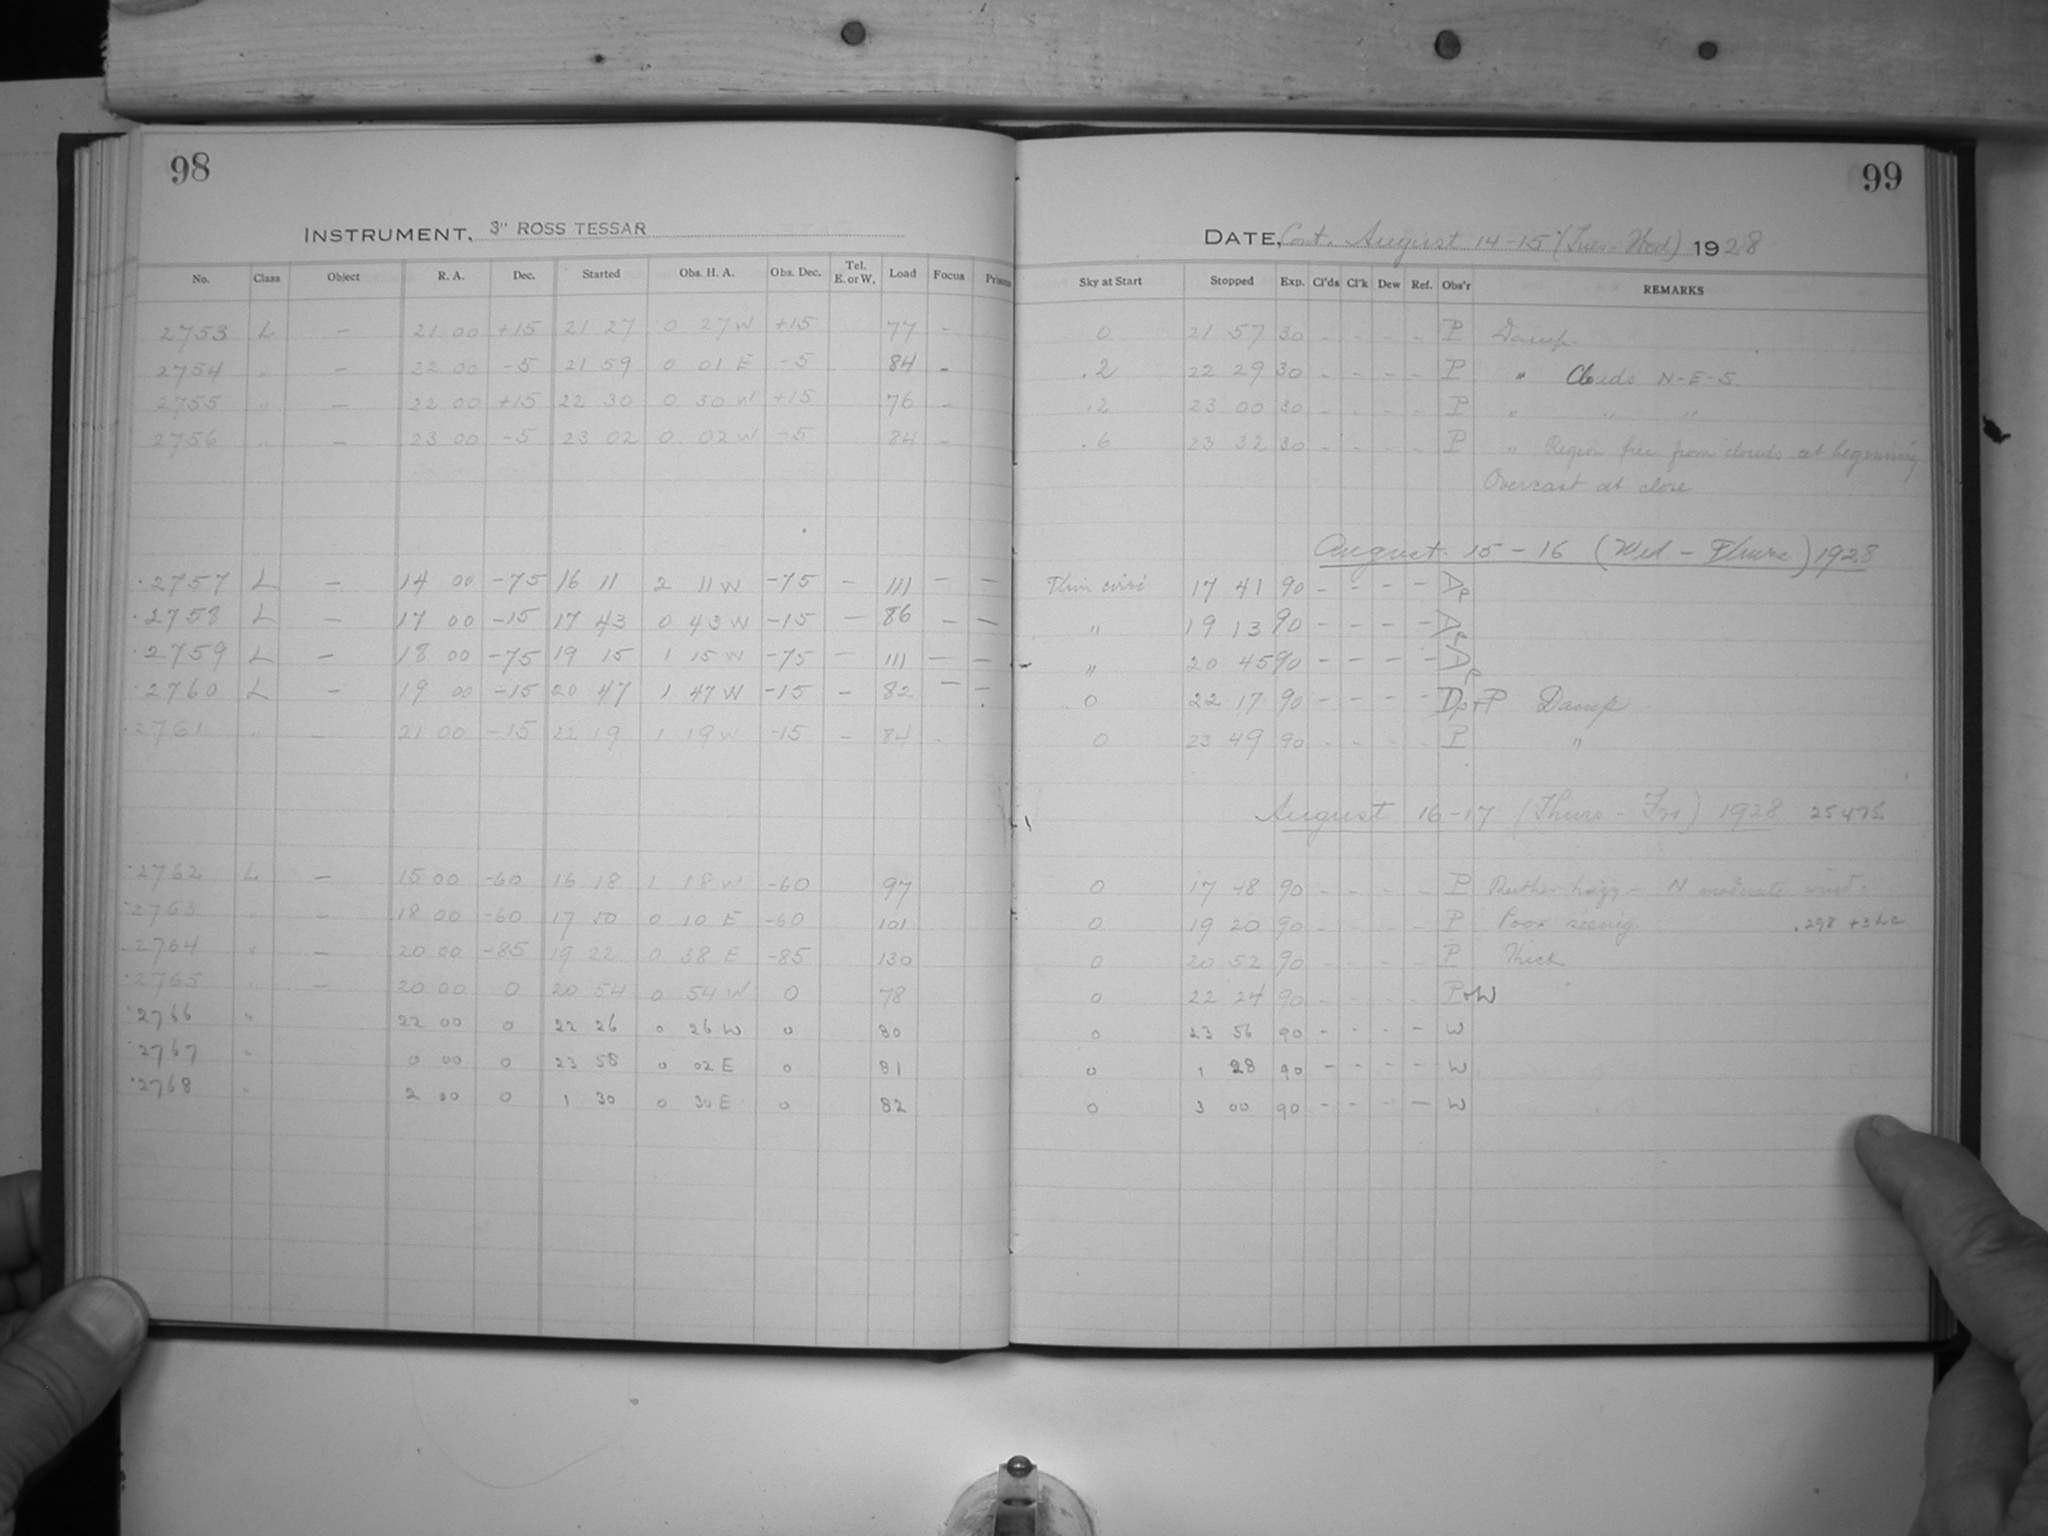 98
INSTRUMENT, 3" ROSS TESSAR
No. Class Object R. A. Dec. Started Obs. H. A. Obs. Dec. Tel. E. or W. Load Focus Prisms
2753 L — 21 00 +15 21 27 0 27 W +15 77 -
2754 " — 22 00 -5 21 59 0 01 E -5 84 -
2755 " — 22 00 +15 22 30 0 30 W +15 76 -
2756 " — 23 00 -5 23 02 0 02 W -5 84 -
2757 L — 14 00 -75 16 11 2 11 W -75 — 111 — —
2758 L — 17 00 -15 17 43 0 43 W -15 — 86 — —
2759 L — 18 00 -75 19 15 1 15 W -75 — 111 — —
2760 L — 19 00 -15 20 47 1 47 W -15 — 82 — —
2761 " — 21 00 -15 22 19 1 19 W -15 — 84 -
2762 L — 15 00 -60 16 18 1 18 W -60 97
2763 " — 18 00 -60 17 50 0 10 E -60 101
2764 " — 20 00 -85 19 22 0 38 E -85 130
2765 " — 20 00 0 20 54 0 54 W 0 78
2766 " 22 00 0 22 26 0 26 W 0 80
2767 " 0 00 0 23 58 0 02 E 0 81
2768 " 2 00 0 1 30 0 30 E 0 82
99
DATE, Cont. August 14-15 (Tues-Wed) 1928
Sky at Start Stopped Exp. Cl'ds Cl'k Dew Ref. Obs'r REMARKS
0 21 57 30 - - - - P Damp
.2 22 29 30 - - - - P " Clouds N-E-S.
.2 23 00 30 - - - - P " " "
.6 23 32 30 - - - - P " Region free from clouds at beginning
Overcast at close
August 15-16 (Wed. - Thurs) 1928
Thin cirri 17 41 90 - - - - Dp
" 19 13 90 - - - - Dp
" 20 45 90 - - - - Dp
0 22 17 90 - - - - Dp+P Damp
0 23 49 90 - - - - P "
August 16-17 (Thurs - Fri) 1928 25475
0 17 48 90 - - - - P Rather hazy - N moderate wind.
0 19 20 90 - - - - P Poor seeing
0 20 52 90 - - - - P Thick
0 22 24 90 - - - - P+W
0 23 56 90 - - - - W
0 1 28 90 - - - - W
0 3 00 90 - - - - W